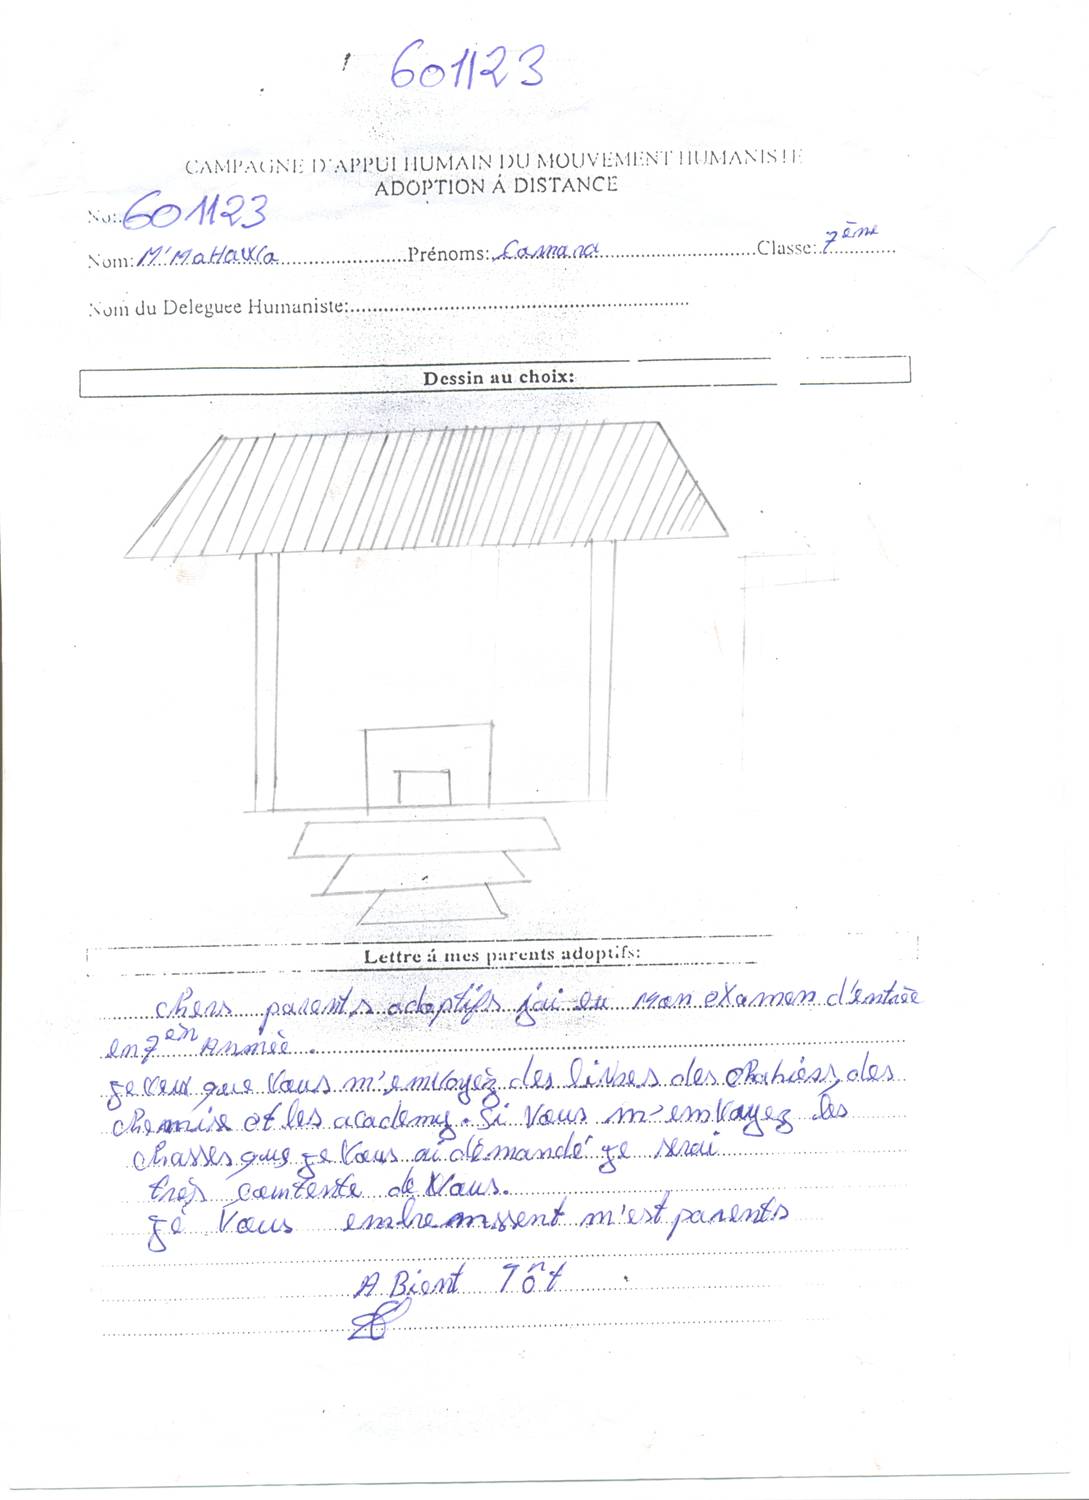 601123
CAMPAGNE D'APPUI HUMAIN DU MOUVEMENT HUMANISTE
ADOPTION Á DISTANCE
No: 601123
Nom: M'MaHawa Prénoms: Camara Classe: 7ème
Nom du Deleguee Humaniste:
Dessin au choix:
Lettre á mes parents adoptifs:
chers parents adoptifs j'ai eu mon examen d'entrèe
en 7èm Annièe.
je veux que Vous m'emvoyèz des livres des chahiers, des
chemise et les academy. Si Vous m'emvoyez les
chasses que je Vous ai démandé je serai
très comtente de Vous.
jé Vous embremssent m'est parents
A Bient Tôt